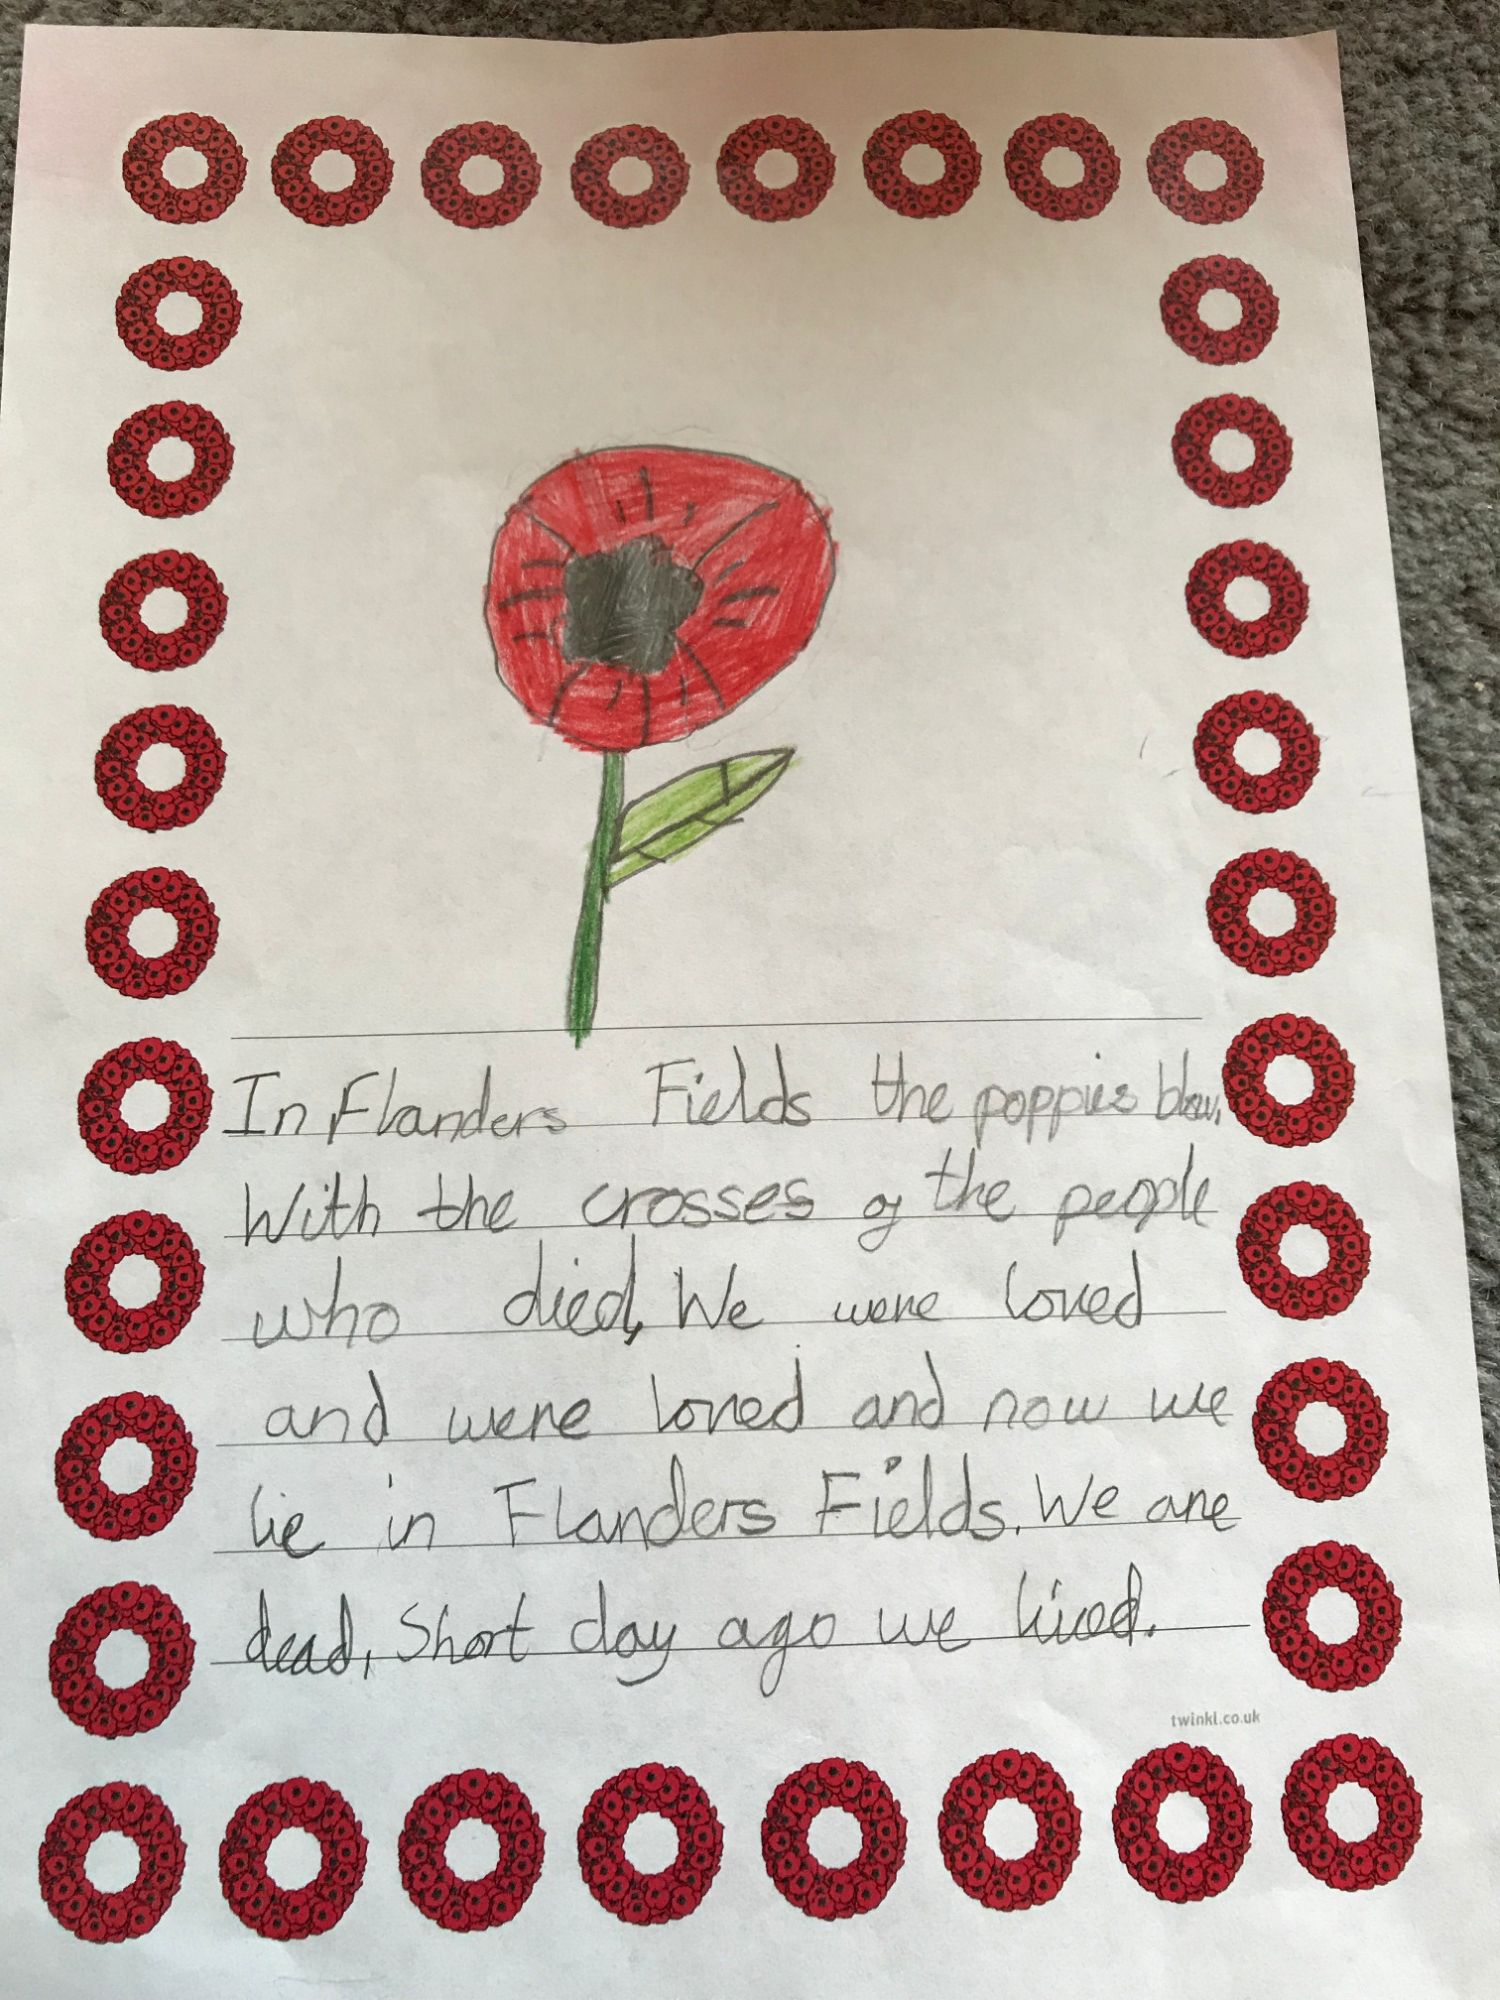 In Flanders Fields the poppies blow,
With the crosses of the people
who died, We were loved
and were loved and now we
lie in Flanders Fields. We are
dead, Short day ago we lived.
twinkl.co.uk